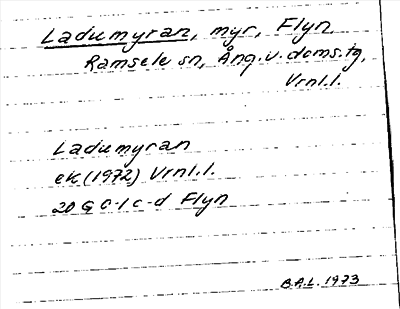 Ladumyran, myr, Flyn,
Ramsele sn, Ång.v.doms.tg,
Vrnl.l.
Ladumyran
ek (1972) Vrnl.l.
20 G 0-1 c-d Flyn
B.A.L. 1973